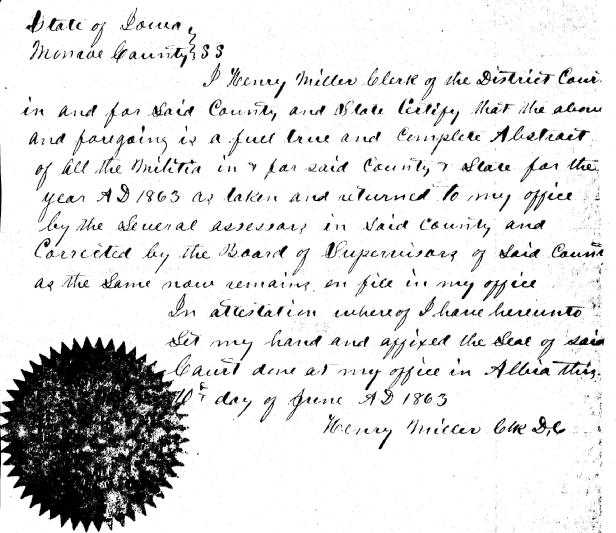 State of Iowa
Monroe County } SS
I Henry Miller Clerk of the District Cour
in and for Said County and State Certify that the above
and forgoing is a full true and Complete Abstract
of all the Militia in & for said County & State for the
year AD 1863 as taken and returned to my office
by the Several assessors in Said County and
Corrected by the Board of Supervisors of Said Count
as the Same now remains on file in my office
In attestation whereof I have hereunto
Set my hand and affixed the Seal of said
Court done at my office in Albia this
day of June AD 1863
Henry Miller Clk D,C